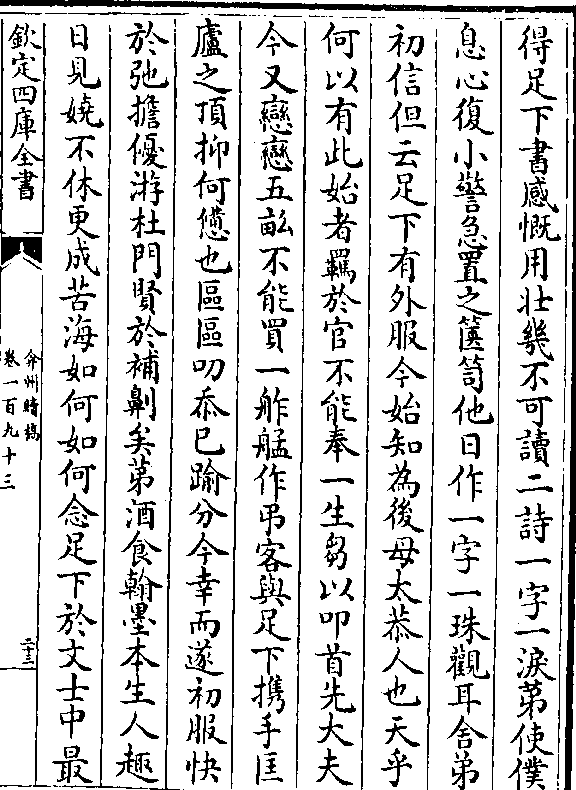 得足下書感慨用壯幾不可讀二詩一字一淚苐使僕
息心復小驚急置之篋笥他日作一字一珠觀耳舍弟
初信但云足下有外服今始知為後母太恭人也天乎
何以有此始者羈於官不能奉一生芻以叩首先大夫
今又戀戀五畝不能買一舴艋作弔客與足下攜手匡
廬之頂抑何憊也區區叨忝已踰分今幸而遂初服快
於弛擔優游杜門賢於補劓矣苐酒食翰墨本生人趣
日見嬈不休更成苦海如何如何念足下於文士中最
欽定四庫全書
弇州續稿
卷一百九十三
二十三